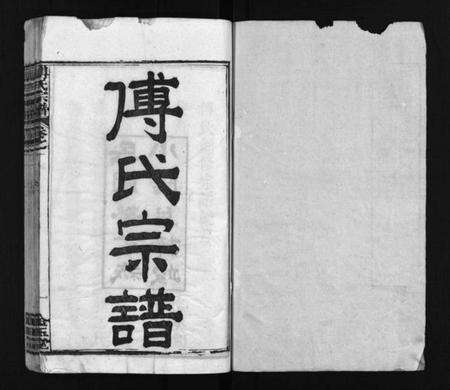 傅氏宗譜